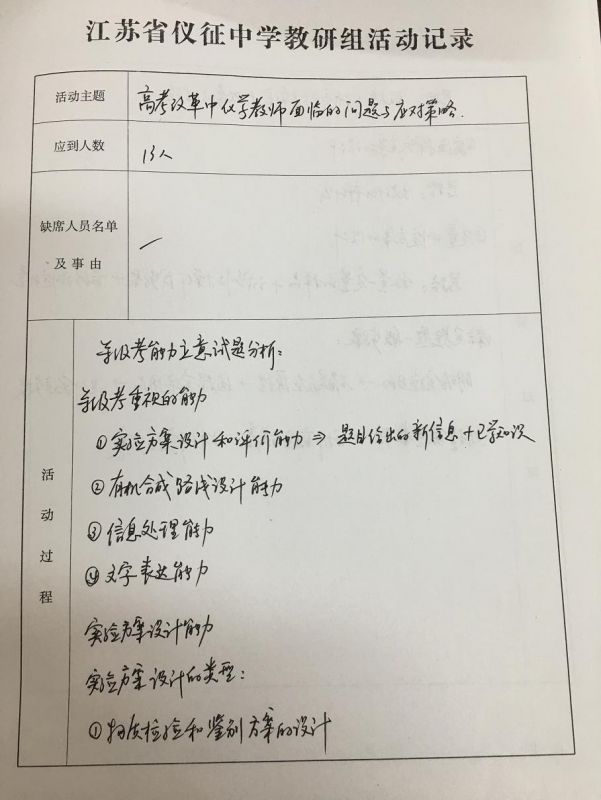 江苏省仪征中学教研组活动记录
活动主题
高考改革中化学教师面临的问题与应对策略.
应到人数
13人
缺席人员名单
及事由
活动过程
等级考能力立意试题分析:
等级考重视的能力
①实验方案设计和评价能力 ⇒ 题目给出的新信息+已学知识
②有机合成路线设计能力
③信息处理能力
④文字表达能力
实验方案设计能力
实验方案设计的类型:
①物质检验和鉴别方案的设计